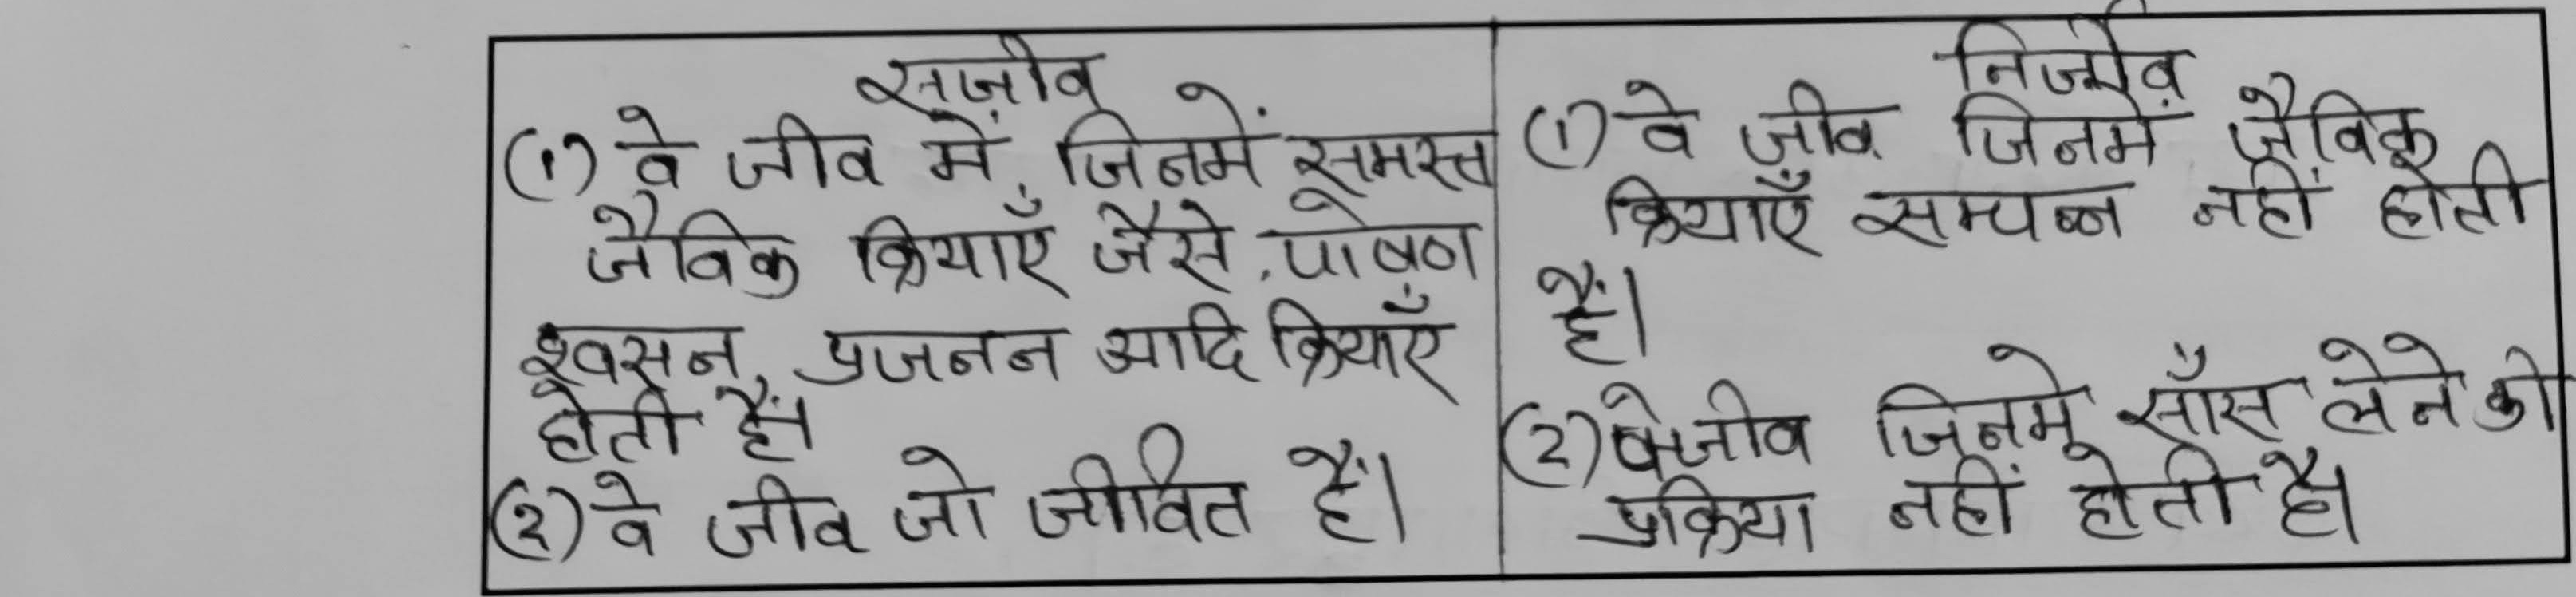 सजीव
(1) वे जीव में, जिनमें समस्त
जैविक क्रियाएँ जैसे, पोषण
श्वसन, प्रजनन आदि क्रियाएँ
होती हैं।
(2) वे जीव जो जीवित हैं।
निर्जीव
(1) वे जीव जिनमें जैविक
क्रियाएँ सम्पन्न नहीं होती
हैं।
(2) वे जीव जिनमे साँस लेने की
प्रक्रिया नहीं होती है।